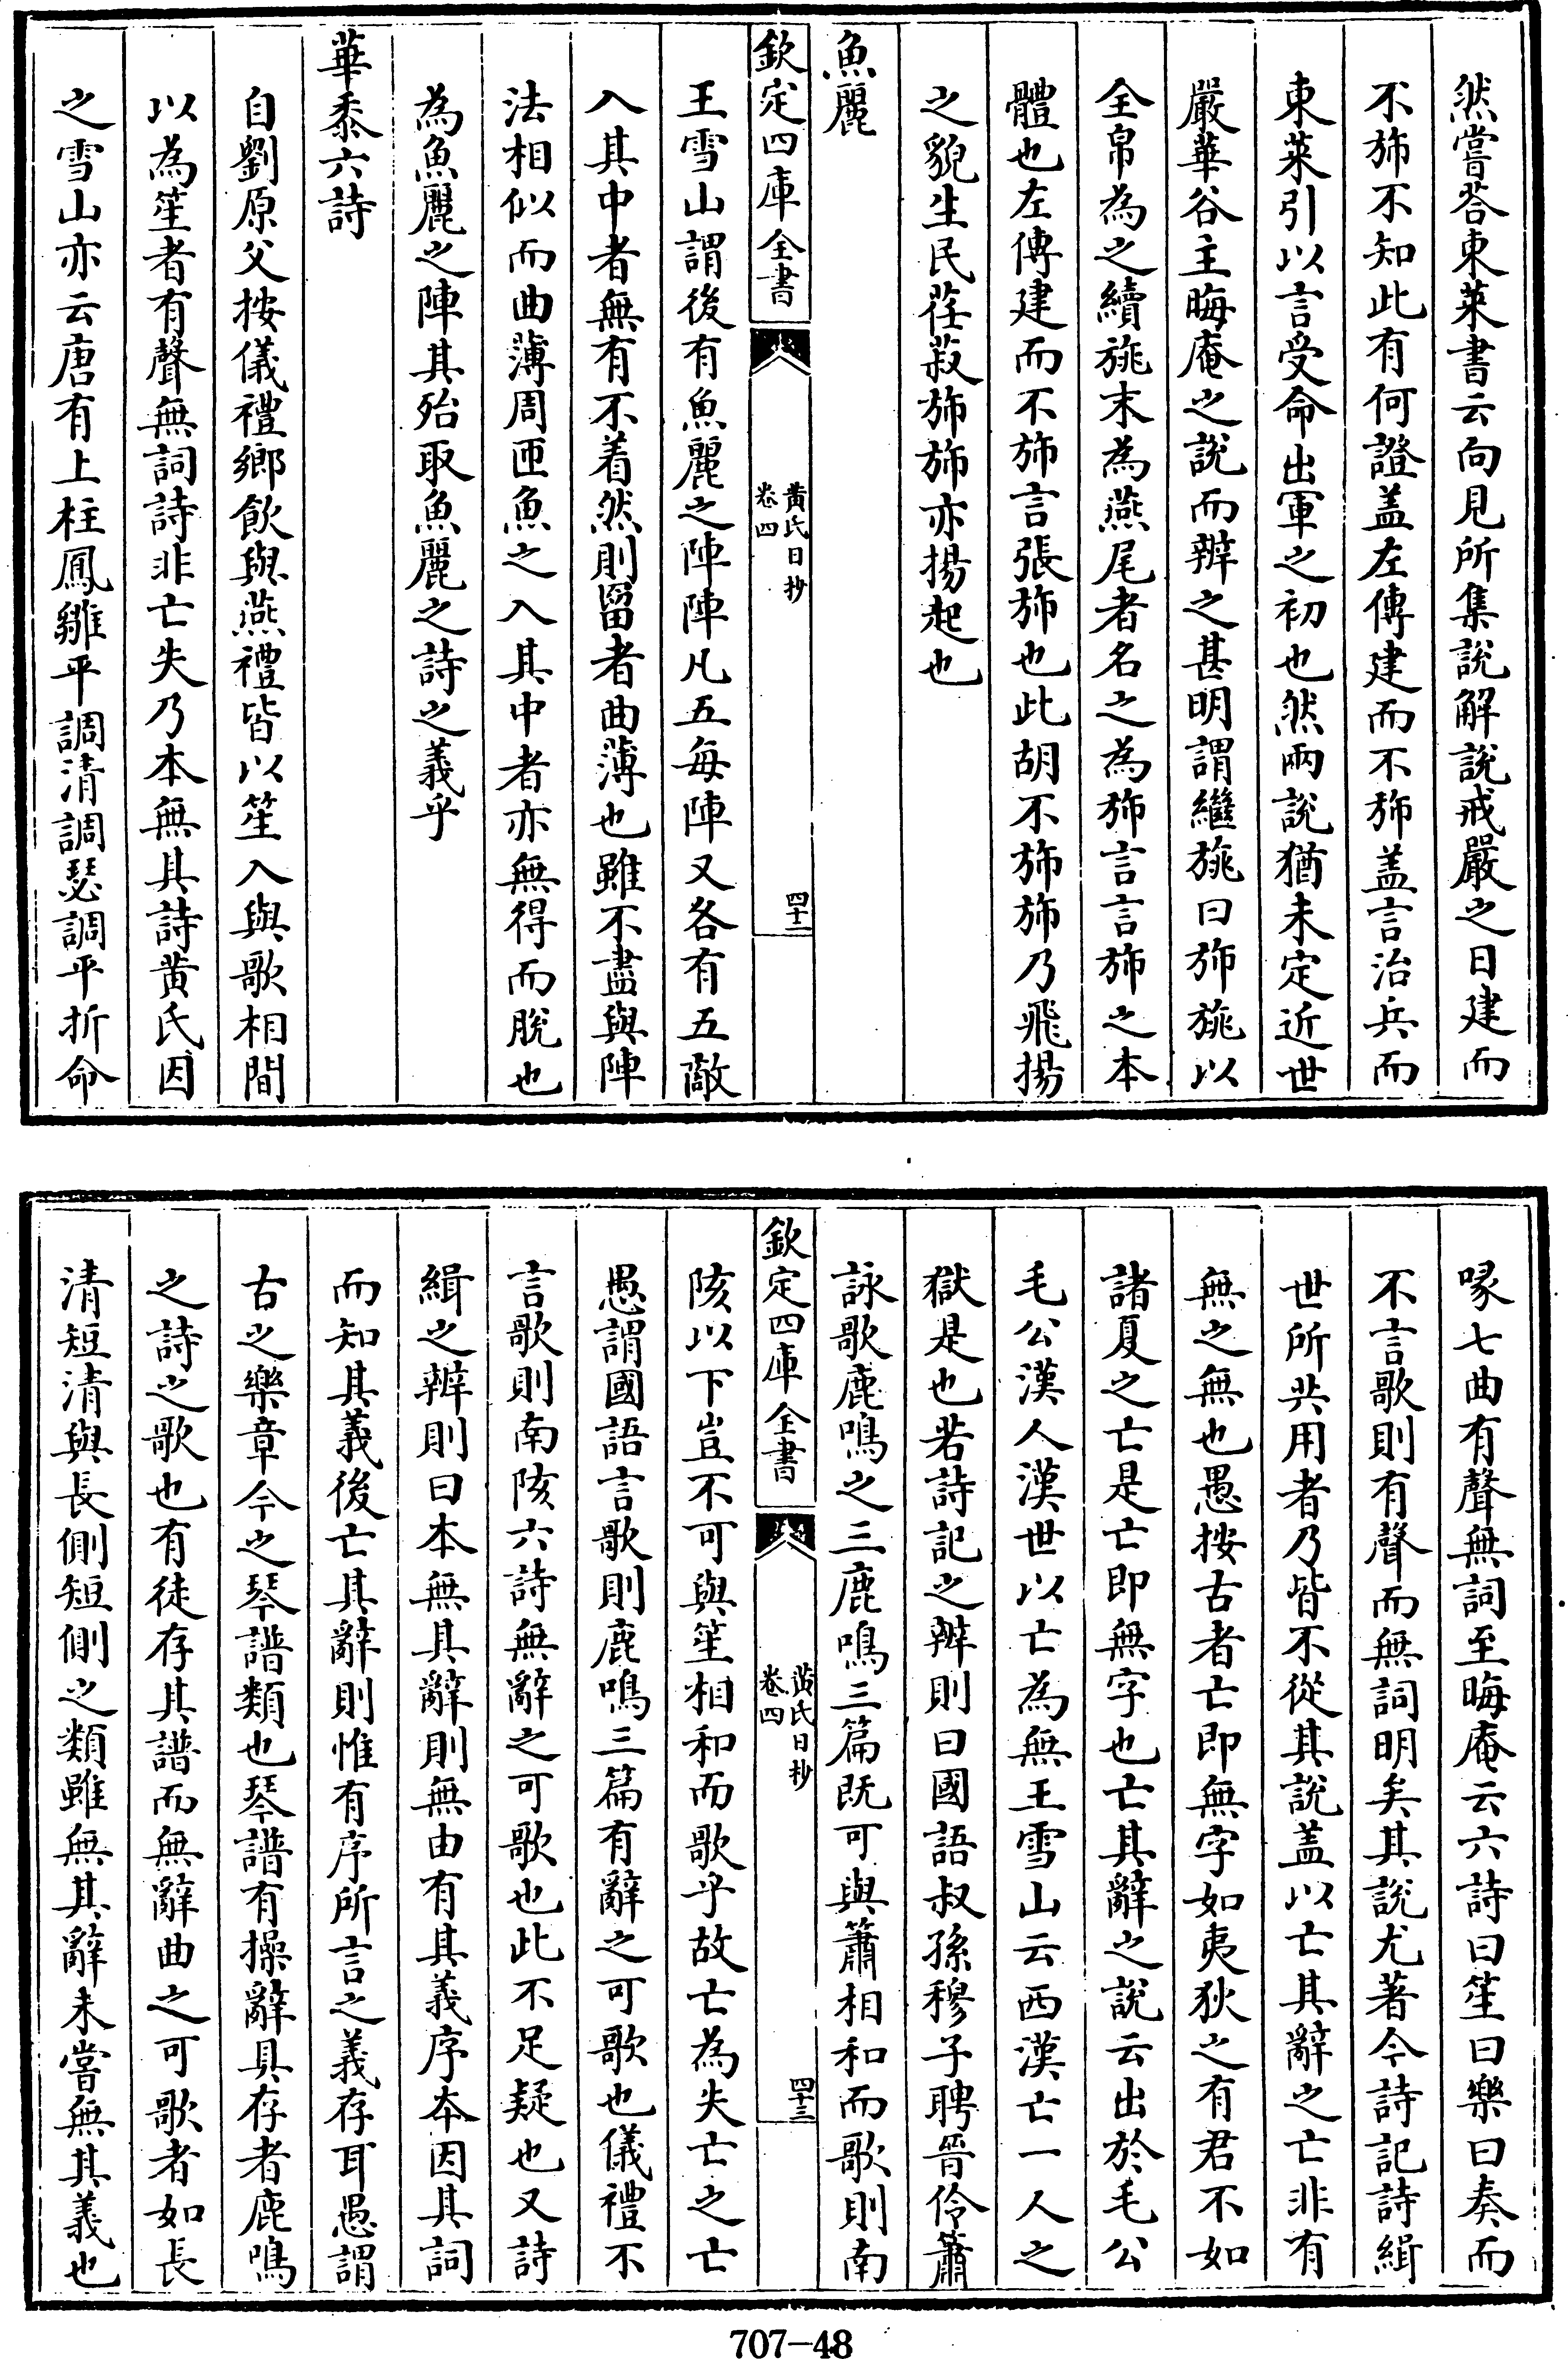 然嘗荅東萊書云向見所集說解說戒嚴之日建而
不斾不知此有何證盖左傳建而不斾盖言治兵而
東萊引以言受命出軍之初也然兩說猶未定近世
嚴華谷主晦庵之說而辨之甚明謂繼旐曰斾旐以
全帛為之續旐末為燕尾者名之為斾言言斾之本
體也左傳建而不斾言張斾也此胡不斾斾乃飛揚
之貌生民荏菽斾斾亦揚起也
魚麗
欽定四庫全書
黃氏日抄
卷四
四十二
王雪山謂後有魚麗之陣陣凡五每陣又各有五敵
入其中者無有不着然則罶者曲薄也雖不盡與陣
法相似而曲薄周匝魚之入其中者亦無得而脫也
為魚麗之陣其殆取魚麗之詩之義乎
華黍六詩
自劉原父按儀禮鄉飲與燕禮皆以笙入與歌相間
以為笙者有聲無詞詩非亡失乃本無其詩黃氏因
之雪山亦云唐有上柱鳳雛平調清調瑟調平折命
喙七曲有聲無詞至晦庵云六詩曰笙曰樂曰奏而
不言歌則有聲而無詞明矣其說尤著今詩記詩緝
世所共用者乃皆不從其說盖以亡其辭之亡非有
無之無也愚按古者亡即無字如夷狄之有君不如
諸夏之亡是亡即無字也亡其辭之說云出於毛公
毛公漢人漢世以亡為無王雪山云西漢亡一人之
獄是也若詩記之辨則曰國語叔孫穆子聘晉伶簫
詠歌鹿鳴之三鹿鳴三篇既可與簫相和而歌則南
欽定四庫全書
黃氏日抄
卷四
四十三
陔以下豈不可與笙相和而歌乎故亡為失亡之亡
愚謂國語言歌則鹿鳴三篇有辭之可歌也儀禮不
言歌則南陔六詩無辭之可歌也此不足疑也又詩
緝之辨則曰本無其辭則無由有其義序本因其詞
而知其義後亡其辭則惟有序所言之義存耳愚謂
古之樂章今之琴譜類也琴譜有操辭具存者鹿鳴
之詩之歌也有徒存其譜而無辭曲之可歌者如長
清短清與長側短側之類雖無其辭未嘗無其義也
707-48